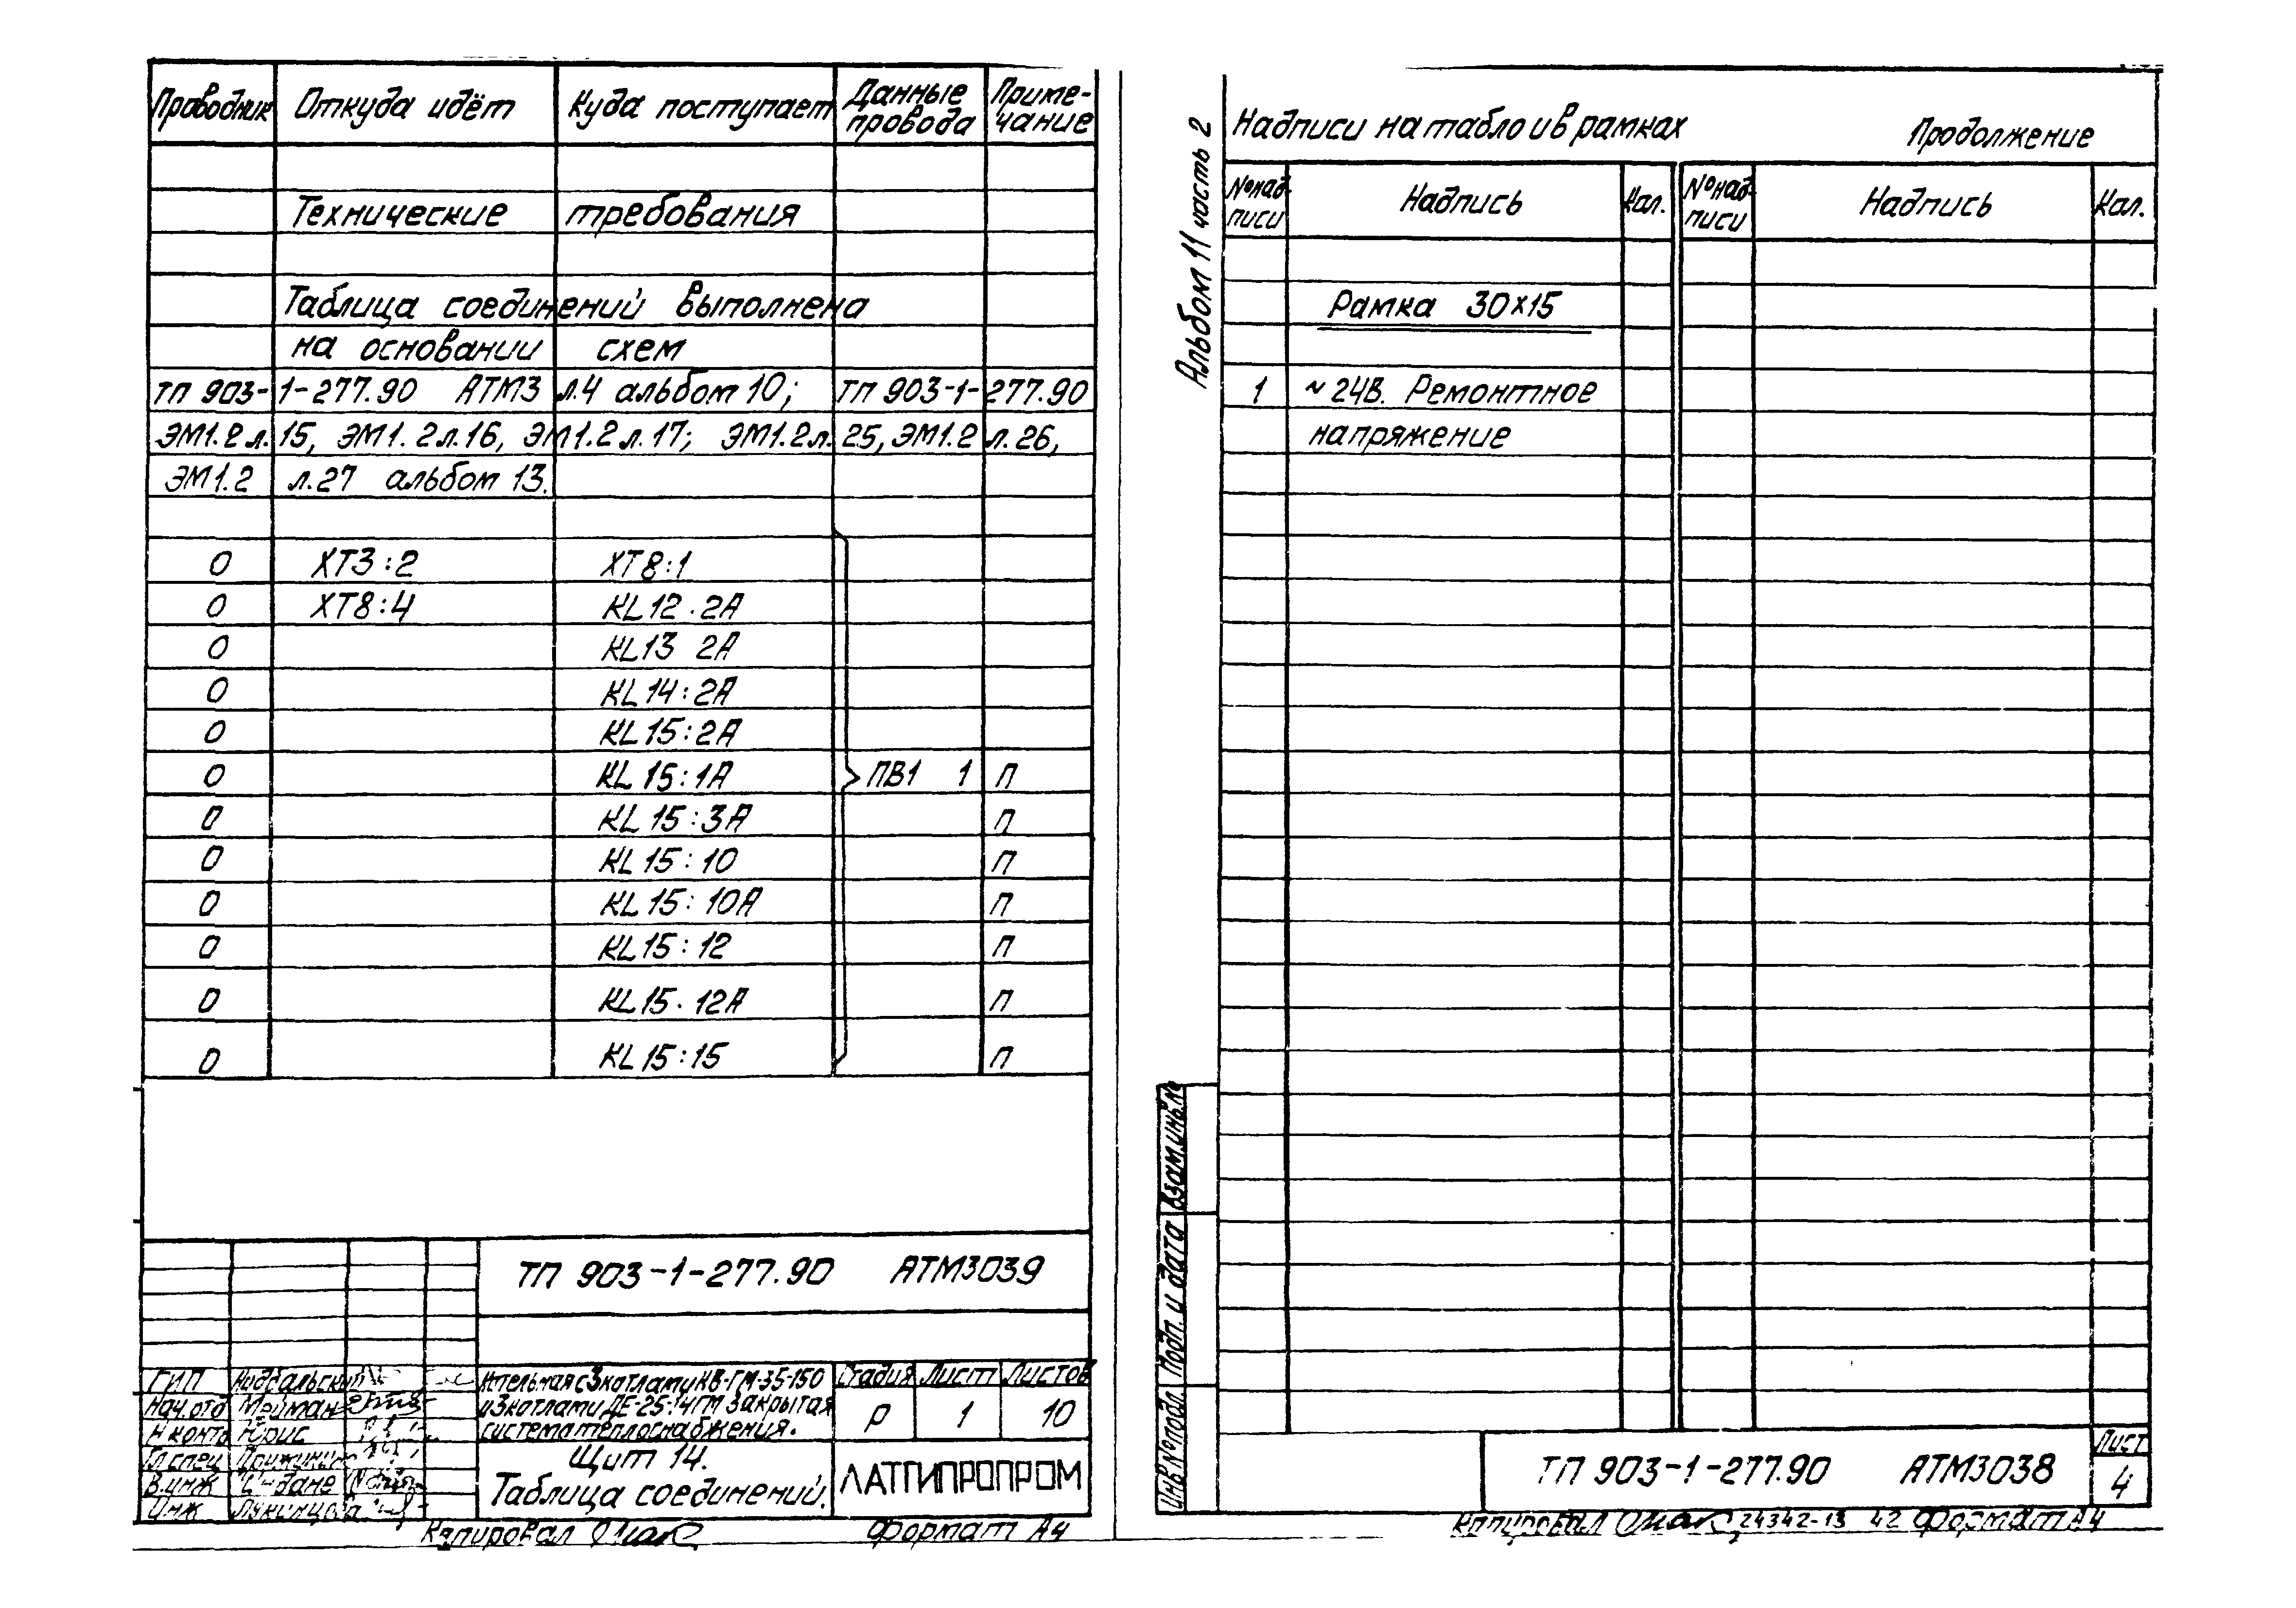 Проводник Откуда идёт Куда поступает Данные провода Примечание
Технические требования
Таблица соединений выполнена
на основании схем
ТП 903-1-277.90 АТМ3 л.4 альбом 10; ТП 903-1-277.90
ЭМ1.2 л.15, ЭМ1.2 л.16, ЭМ1.2 л.17; ЭМ1.2 л.25, ЭМ1.2 л.26,
ЭМ1.2 л.27 альбом 13.
0 ХТ3:2 ХТ8:1
0 ХТ8:4 KL12.2А
0 KL13 2А
0 KL14:2А
0 KL15:2А
0 KL15:1А ПВ1 1 П
0 KL15:3А П
0 KL15:10 П
0 KL15:10А П
0 KL15:12 П
0 KL15.12А П
0 KL15:15 П
ТП 903-1-277.90 АТМ3039
ГИП
Нач.отд Мейман
Н контр Юрис
Гл спец
В.инж
Инж
Котельная с 3 котлами КВ-ГМ-35-150
и 3 котлами ДЕ-25-14ГМ Закрытая
система теплоснабжения.
Стадия Лист Листов
Р 1 10
Щит 14.
Таблица соединений.
ЛАТГИПРОПРОМ
Копировал Формат А4
Альбом 11 часть 2
Надписи на табло и в рамках Продолжение
№ надписи Надпись Кол. № надписи Надпись Кол.
Рамка 30х15
1 ~24В. Ремонтное
напряжение
Взам.инв.№
Подп. и дата
Инв № подл.
ТП 903-1-277.90 АТМ3038
Лист
4
Копировал 24342-13 42 Формат А4